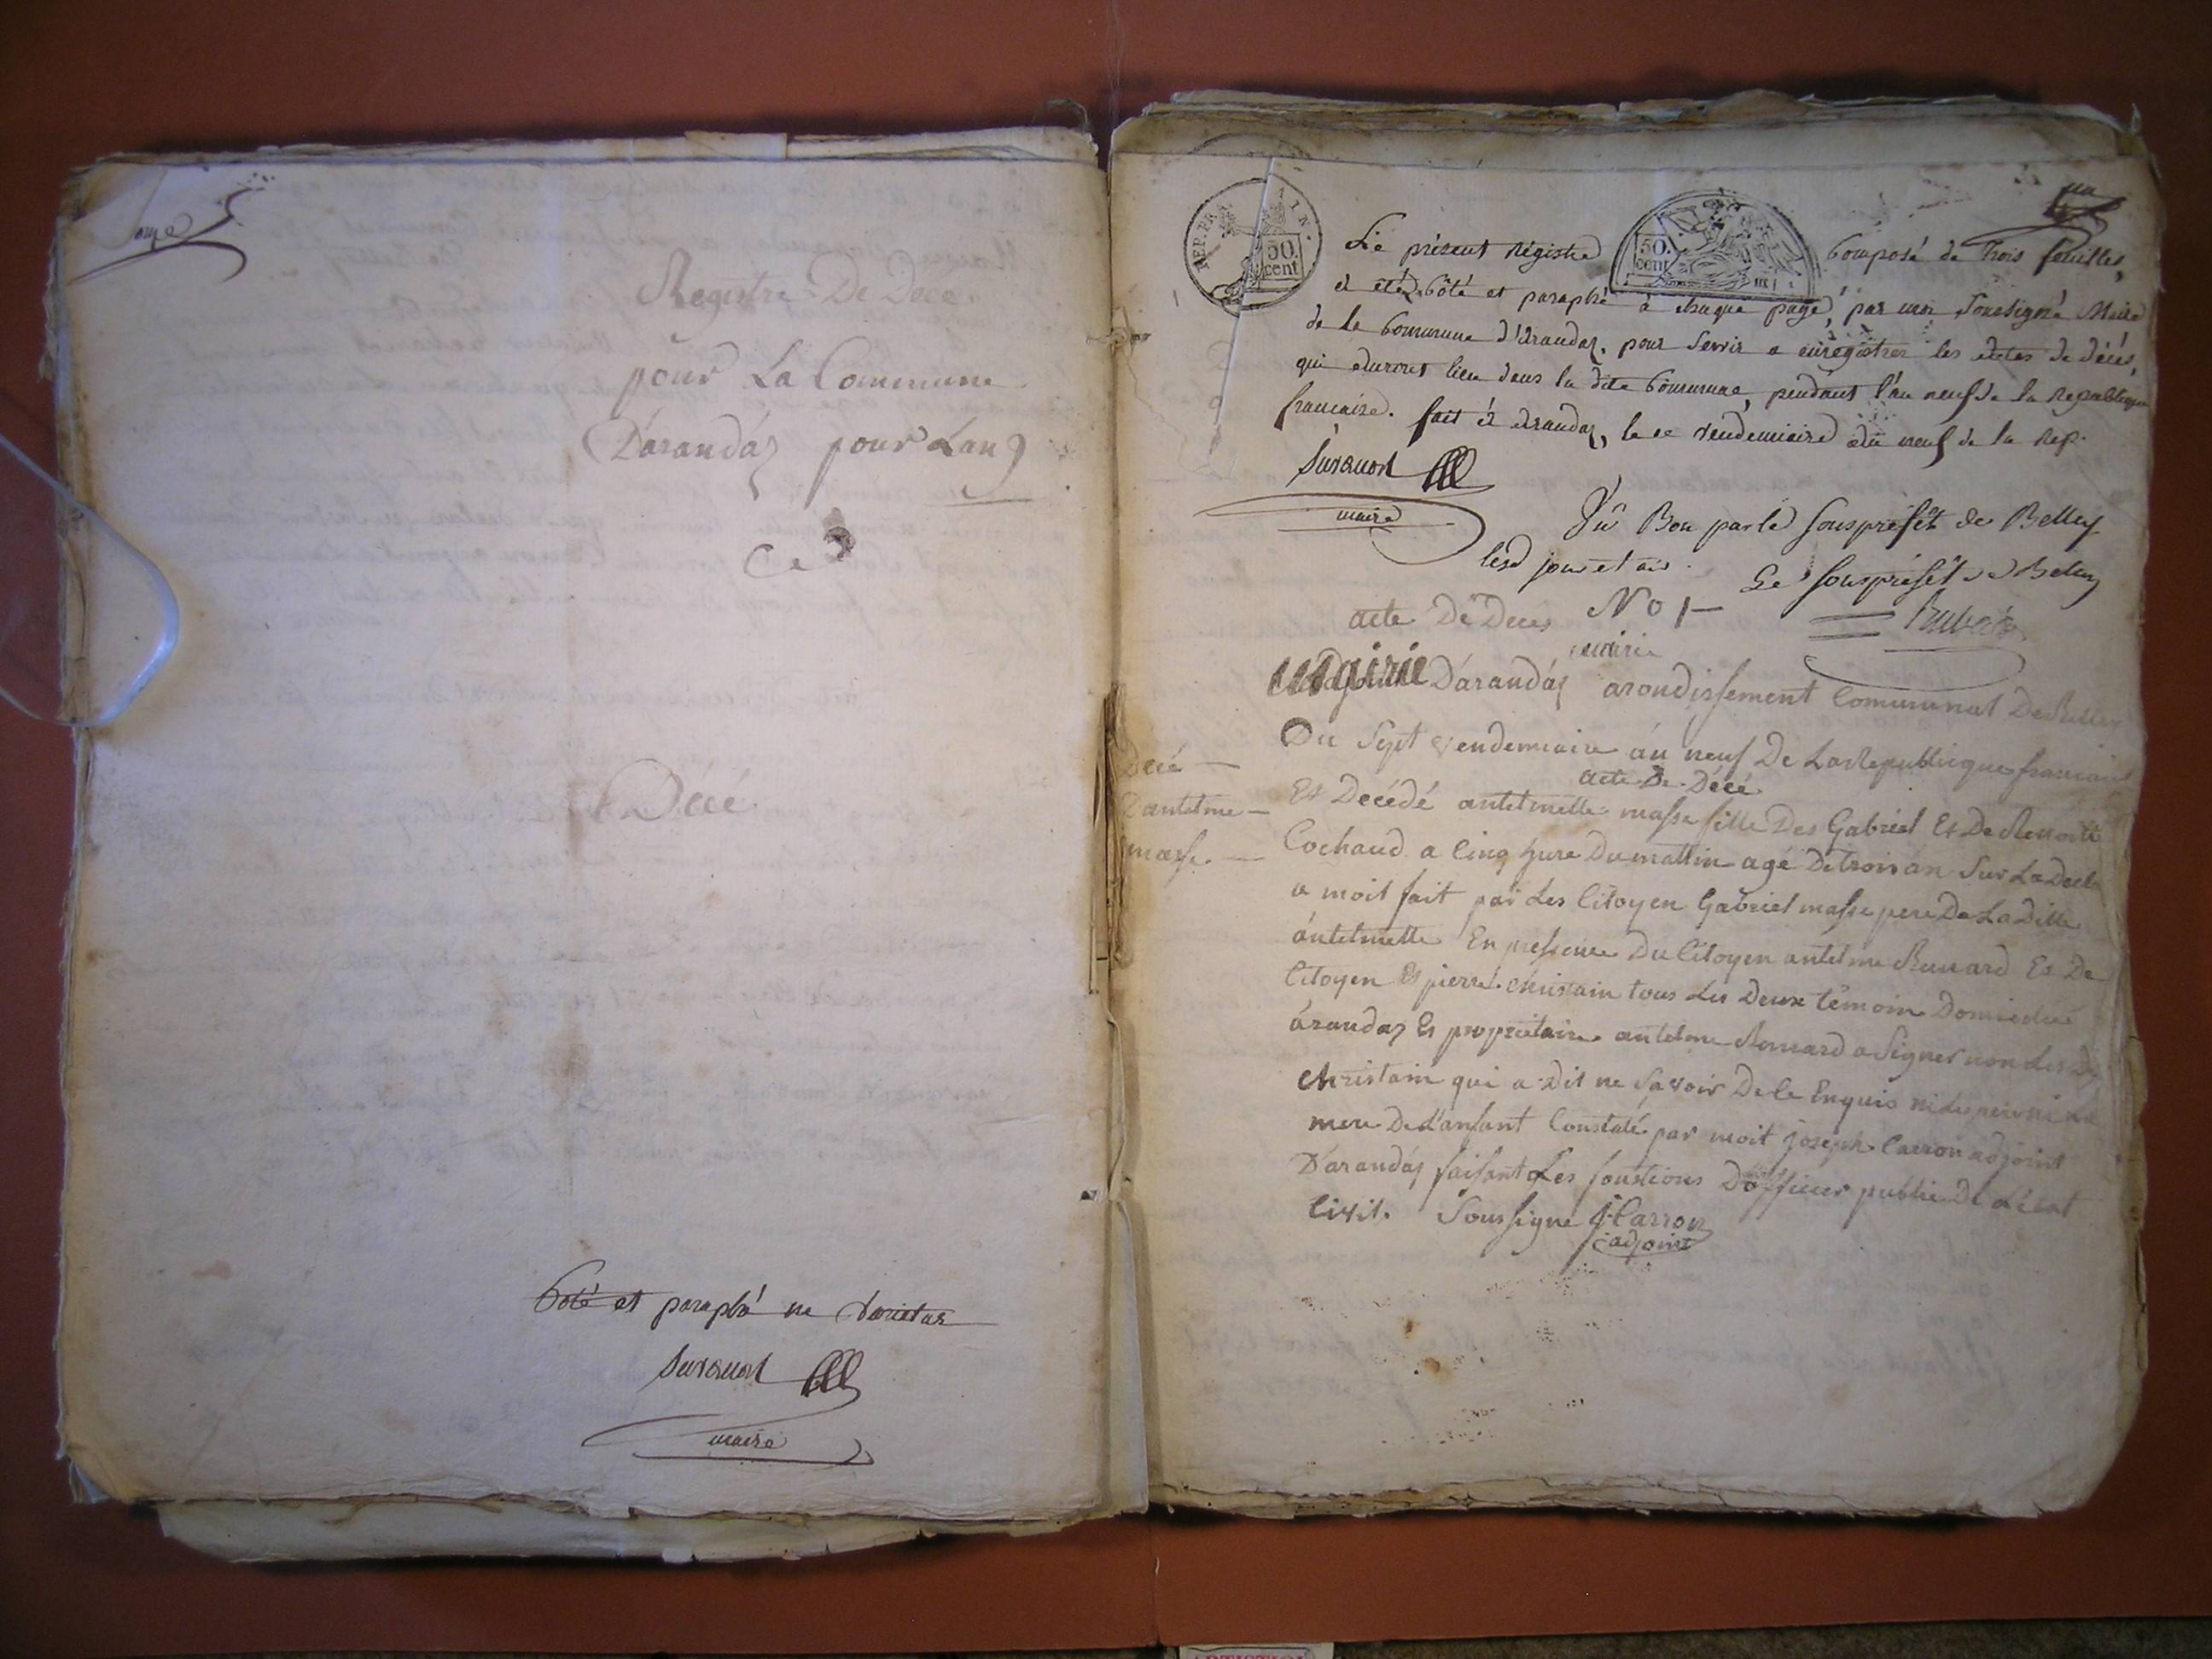 onze
Registre De Décé
pour La Commune
D'arandas pour Lan 9
Ce
Décé
Coté et paraphé ne varietur
maire
REP. FRA
50.
cent
un
50.
cent
Le présent régistre Composé de trois feuilles,
a été Côté et paraphé à chaque page, par moi soussigné Maire
de la Commune d'Arandas, pour servir a enregistrer les actes de décés,
qui auront lieu dans la dite Commune, pendant l'an neuf de la République
francaise. fait à Arandas, le vendemiaire an neuf de la Rep.
maire
Vû Bon par le souspréfêt de Belley
lesd jour et an.
Le souspréfêt de Belley
acte De Deces No 1
mairie
mairie D'arandas arondissement Communal De Belley
Du sept vendemiaire án neuf De La Republique francaise
acte De Décé
Décé
D'antelme
masse
Est Decédé antelmette masse fille Des Gabriel Et De Benoite
Cochaud a cinq hure Du mattin agé De trois an sur La Decla
a moit fait par Les Citoyen Gabriel masse pere De La Ditte
ántelmette En presence Du Citoyen antelme Renard Et De
Citoyen Et pierre christain tous Les Deux témoin Domicilié
árandas Et propriétaire antelme Renard a Signer non Les D
christain qui a Dit ne savoir De ce Enquis ni Le pere ni La
mere De L'anfant Constaté par moit joseph Carron adjoint
D'arandas faisant Les fonctions D'officier public De L'état
Civil. Soussigne J Carron
adjoint